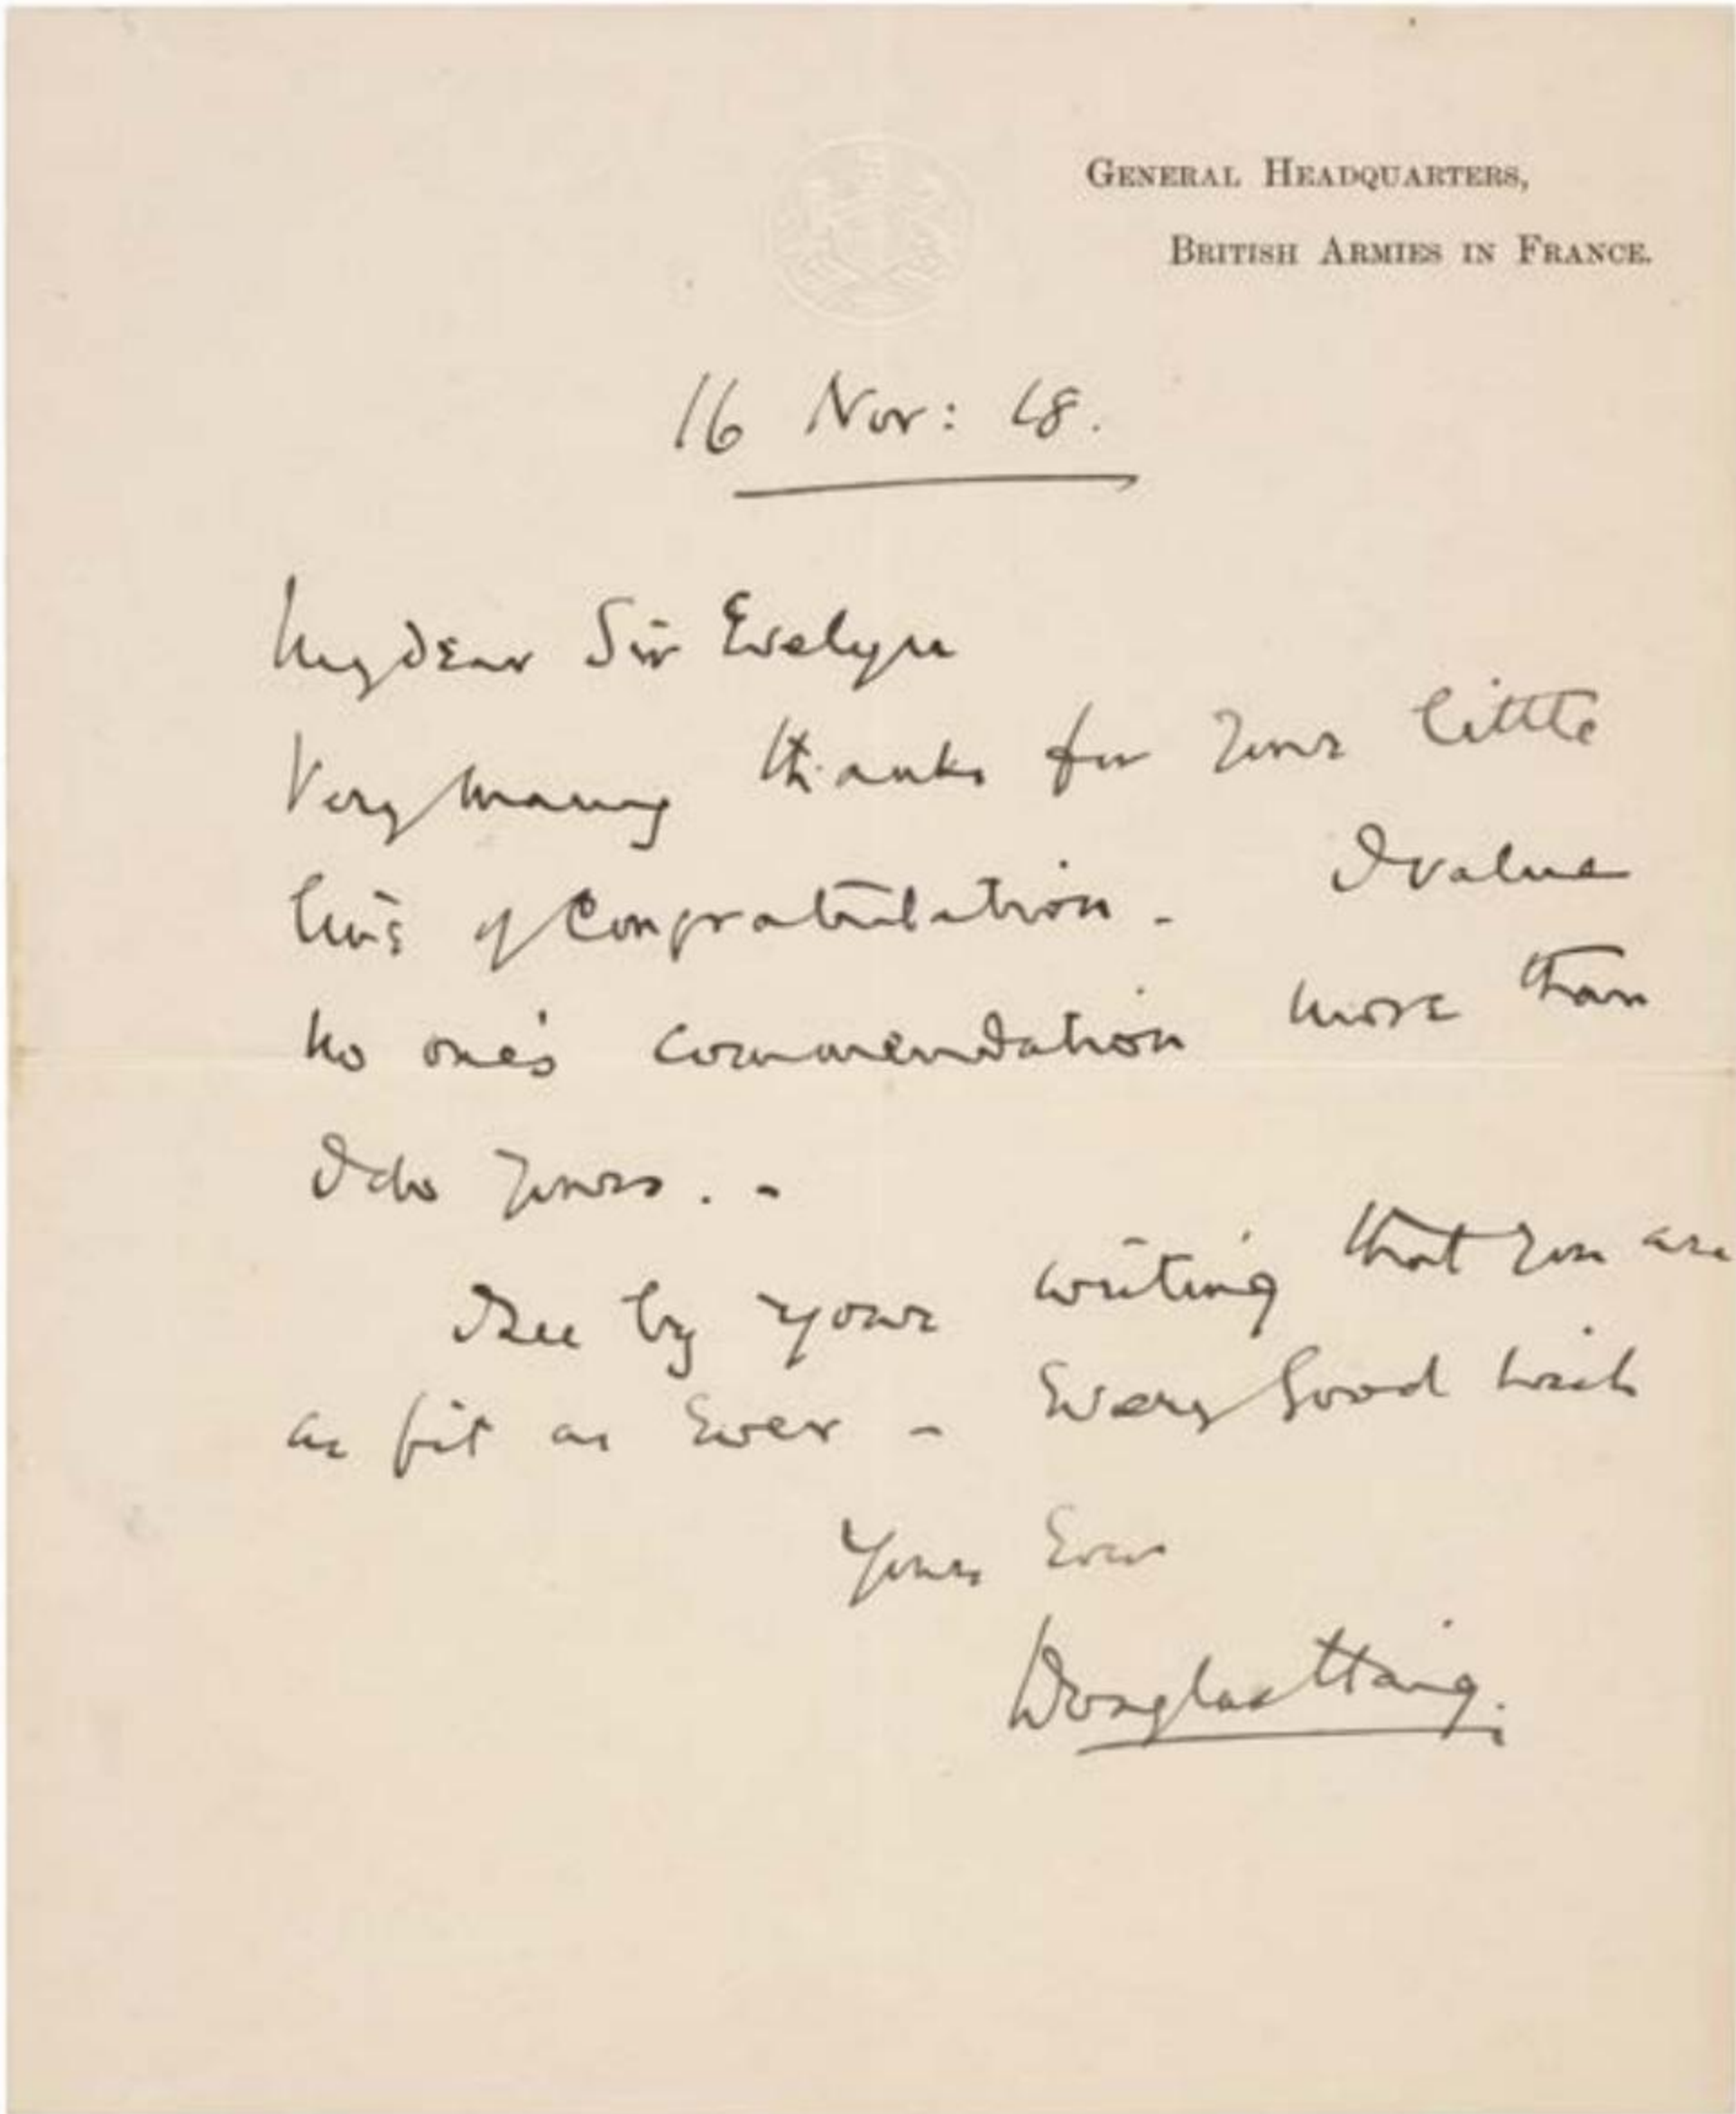 GENERAL HEADQUARTERS,
BRITISH ARMIES IN FRANCE.
16 Nov: 18.
My dear Sir Evelyn
Very many thanks for your little
line of Congratulation - I value
no one's commendation more than
I do yours. -
I see by your writing that you are
as fit as Ever - Every Good wish
Yours Ever
Douglas Haig.